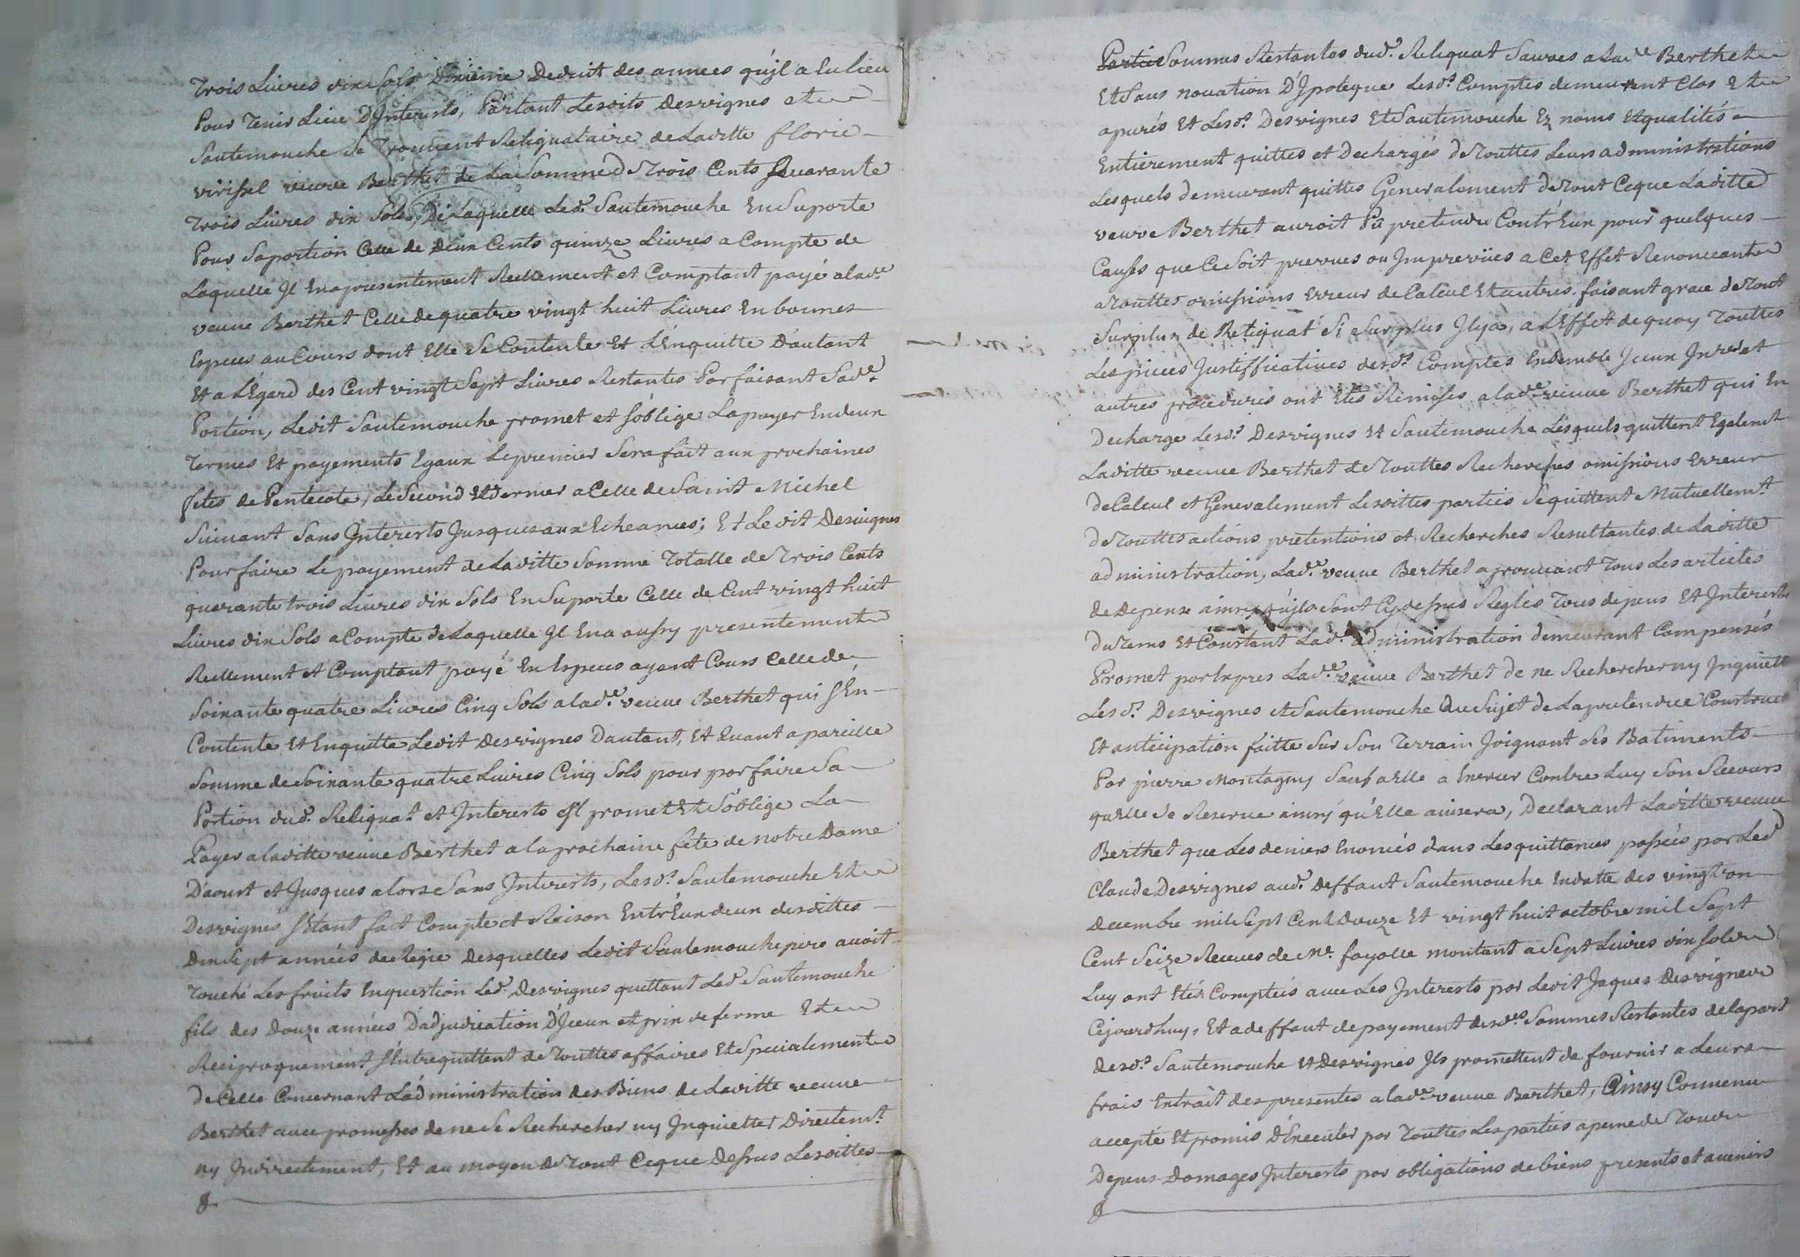 Trois Livres dix sols dixieme Deduit des années qu'jl a Eu lieu
Pour Tenir Lieu D'Interests, Partant Lesdits Desvignes et
Sautemouche Se Trouvent Reliquataire de Laditte florie
virissel veuve Berthet de La Somme d Trois Cents Quarante
Trois Livres dix Sols, De Laquelle Led. Sautemouche En Suporte
Pour Saportion Celle de deux Cents quinze Livres a Compte de
Laquelle Jl En a presentement Reellement et Comptant payé a lade
veuve Berthet Celle de quatre vingt huit Livres En bonnes
Especes au Cours dont Elle Se Contente Et L'Enquitte D'autant
Et a L'Egard des Cent vingt Sept Livres Restantes Parfaisant Sade.
Portion, Ledit Sautemouche promet et s'oblige La payer En deux
Termes Et payements Egaux Le premier Sera fait aux prochaines
fêtes de Pentecote, Le Second Et dernier a Celle de Saint Michel
Suivant Sans Jnterests Jusques aux Echeances; Et Ledit Desvignes
Pour faire Le payement de Laditte Somme Totalle de Trois Cents
quarante trois Livres dix Sols En Suporte Celle de Cent vingt huit
Livres dix Sols a Compte de Laquelle Jl En a aussy presentement
Reellement et Comptant payé En Especes ayant Cours Celle de
Soixante quatre Livres Cinq Sols a lade. veuve Berthet qui S'En
Contente Et Enquitte Ledit Desvignes D'autant, Et Quant a pareille
Somme de Soixante quatre Livres Cinq Sols pour parfaire Sa
Portion dud. Reliquat et Jnterests Jl promet Et S'oblige La
Payer a laditte veuve Berthet a la prochaine fête de notre Dame
D'aoust et Jusques alors Sans Jnterests, Lesd. Sautemouche Et
Desvignes S'Etant fait Compte et Raison Entr'Eux deux desdittes
Dixsept années de Regie Desquelles Ledit Sautemouche pere avoit
Touché Les fruits En question Led. Desvignes quittant Led. Sautemouche
fils des Douze années D'adjudication D'Jceux et prix de ferme Et
Reciproquement S'Entrequittent de Touttes affaires Et Specialement
De Celle Concernant L'administration des Biens de Laditte veuve
Berthet avec promesses de ne Se Rechercher ny Jnquietter Directemt.
ny Jndirectement, Et au moyen de Tout Ceque Dessus Lesdittes
Partie Sommes Restantes dud. Reliquat Sauves a Lade Berthet
Et Sans novation D'Jpoteque Lesd. Comptes demeurent Clos Et
apurés Et Lesd. Desvignes Et Sautemouche Ez noms Et qualités
Entièrement quittes et Dechargés de Touttes Leurs administrations
Lesquels demeurent quittes Generalement de Tout Ceque Laditte
veuve Berthet auroit Pû pretendre Contr'Eux pour quelques
Causes que Ce Soit prevues ou Jmprevües a Cet Effet Renonceant
a Touttes omissions Erreur de Calcul Et autres, faisant grace de Tout
Surplus de Reliquat Si Surplus Jl y a, a L'Effet de quoy Touttes
Les pieces Justifficatives desd. Comptes Ensemble Jceux Jnvet.
autres procedures ont Etés Remises a lade. veuve Berthet qui En
Decharge Lesd. Desvignes Et Sautemouche Lesquels quittent Egalemt.
Laditte veuve Berthet de Touttes Recherches omissions Erreur
De Calcul et Generalement Lesdittes parties Se quittent Mutuellemt.
De Touttes actions pretentions et Recherches Resultantes de Laditte
administration, Lade. veuve Berthet aprouvant Tous Les articles
de Depense ainsy qu'jls Sont Cy dessus Reglés Tous depens Et Jnterests
Du Tems Et Constant Lad. administration demeurant Compensés
Promet par Expres Lade. veuve Berthet de ne Rechercher ny Jnquietter
Lesd. Desvignes et Sautemouche Au Sujet de La pretendüe Construct
Et anticipation faitte Sur Son Terrain Joignant Ses Batiments
Par pierre Montagny Sauf a Elle a Exercer Contre Luy Son Recours
qu'Elle Se Reserve ainsy qu'Elle avisera, Declarant Laditte veuve
Berthet que Les deniers Enoncés dans Les quittances passées par Led.
Claude Desvignes aud. deffunt Sautemouche En datte des vingt on
Decembre mil Sept Cent Douze Et vingt huit octobre mil Sept
Cent Seize Receues de Me. fayolle montant a Sept Livres dix Sols
Luy ont Etés Comptées avec Les Jnterests par Ledit Jaques Desvignes
Cejourdhuy, Et a deffaut de payement desdes Sommes Restantes de la part
desd. Sautemouche et Desvignes Jls promettent de fournir a Leurs
frais Extrait des presentes a lade. veuve Berthet, Ainsy Convenu
accepté Et promis D'Executer par Touttes Les parties a peine de Tous
Depens Domages Jnterests par obligations de biens presents et avenirs